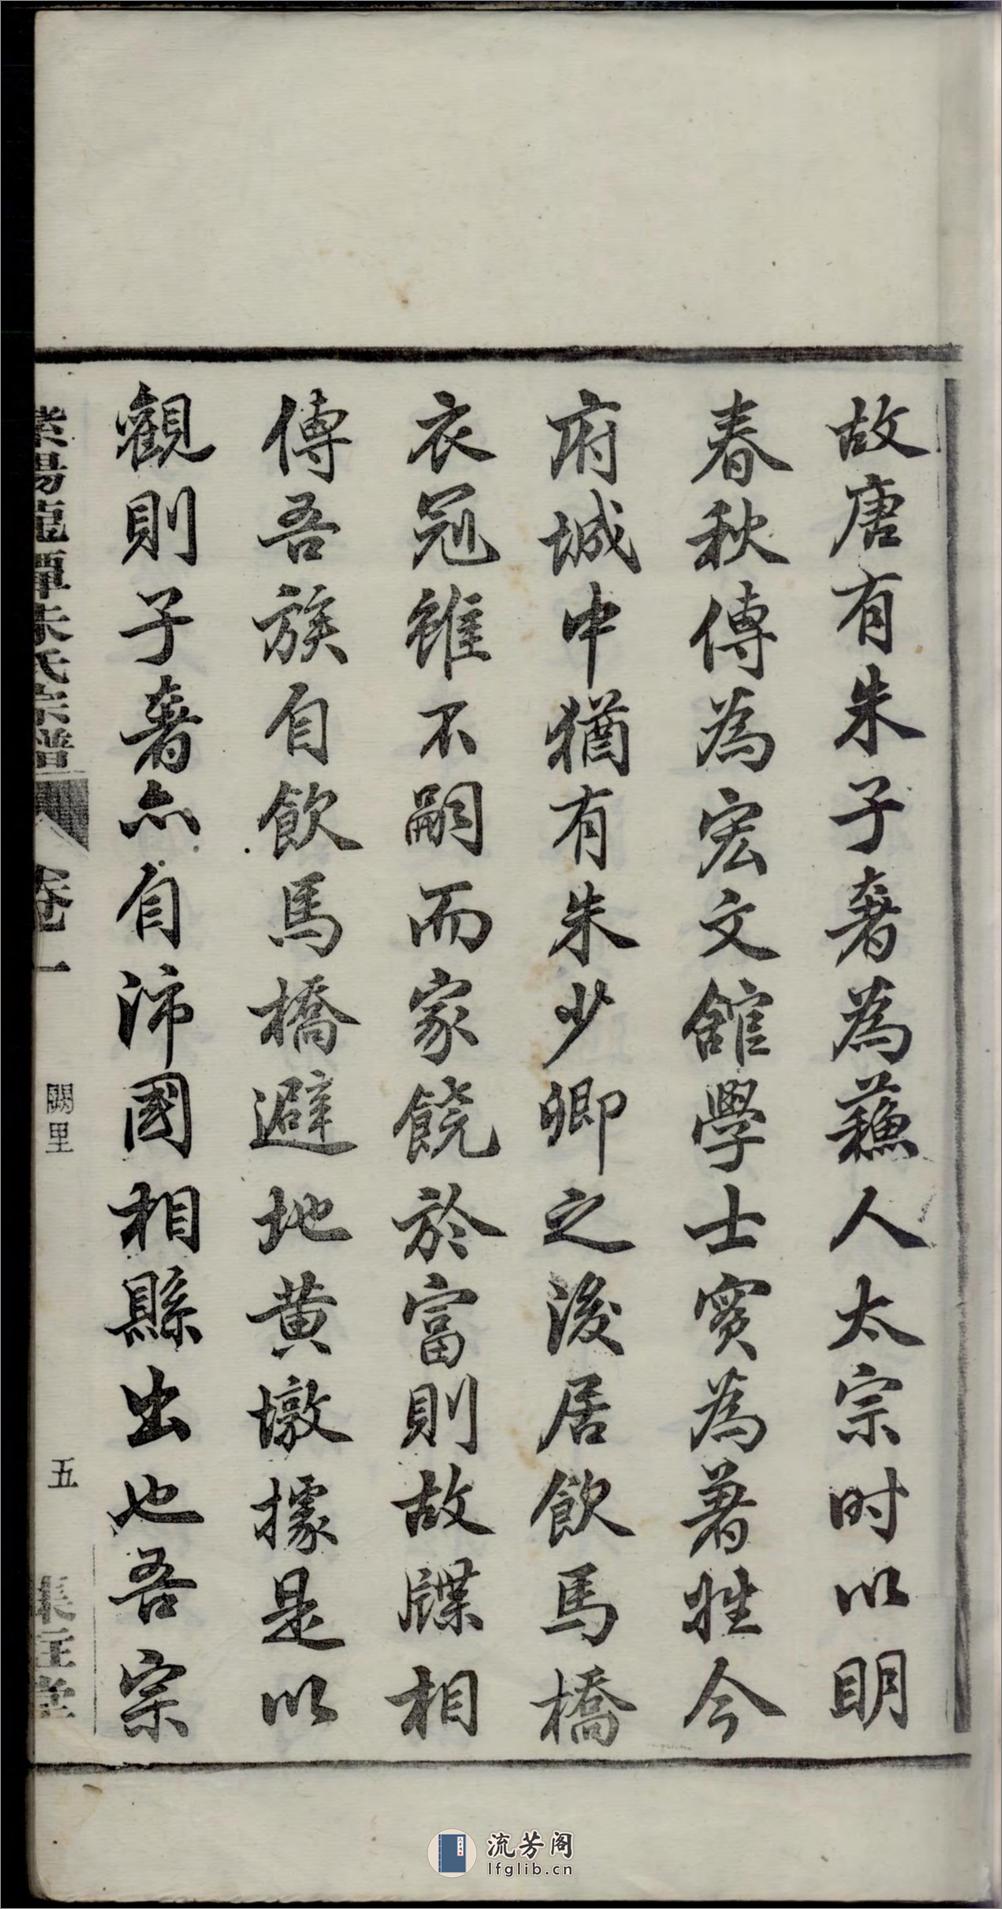 故唐有朱子奢為蘓人太宗时以明
春秋傳為宏文舘學士實為著姓今
府城中猶有朱少卿之後居飲馬橋
衣冠雖不嗣而家饒於富則故牒相
傳吾族自飲馬橋避地黄墩據是以
觀則子奢亦自沛國相縣出也吾宗
紫陽龍潭朱氏宗譜
卷一
闕里
五
集註堂
流芳阁
lfglib.cn